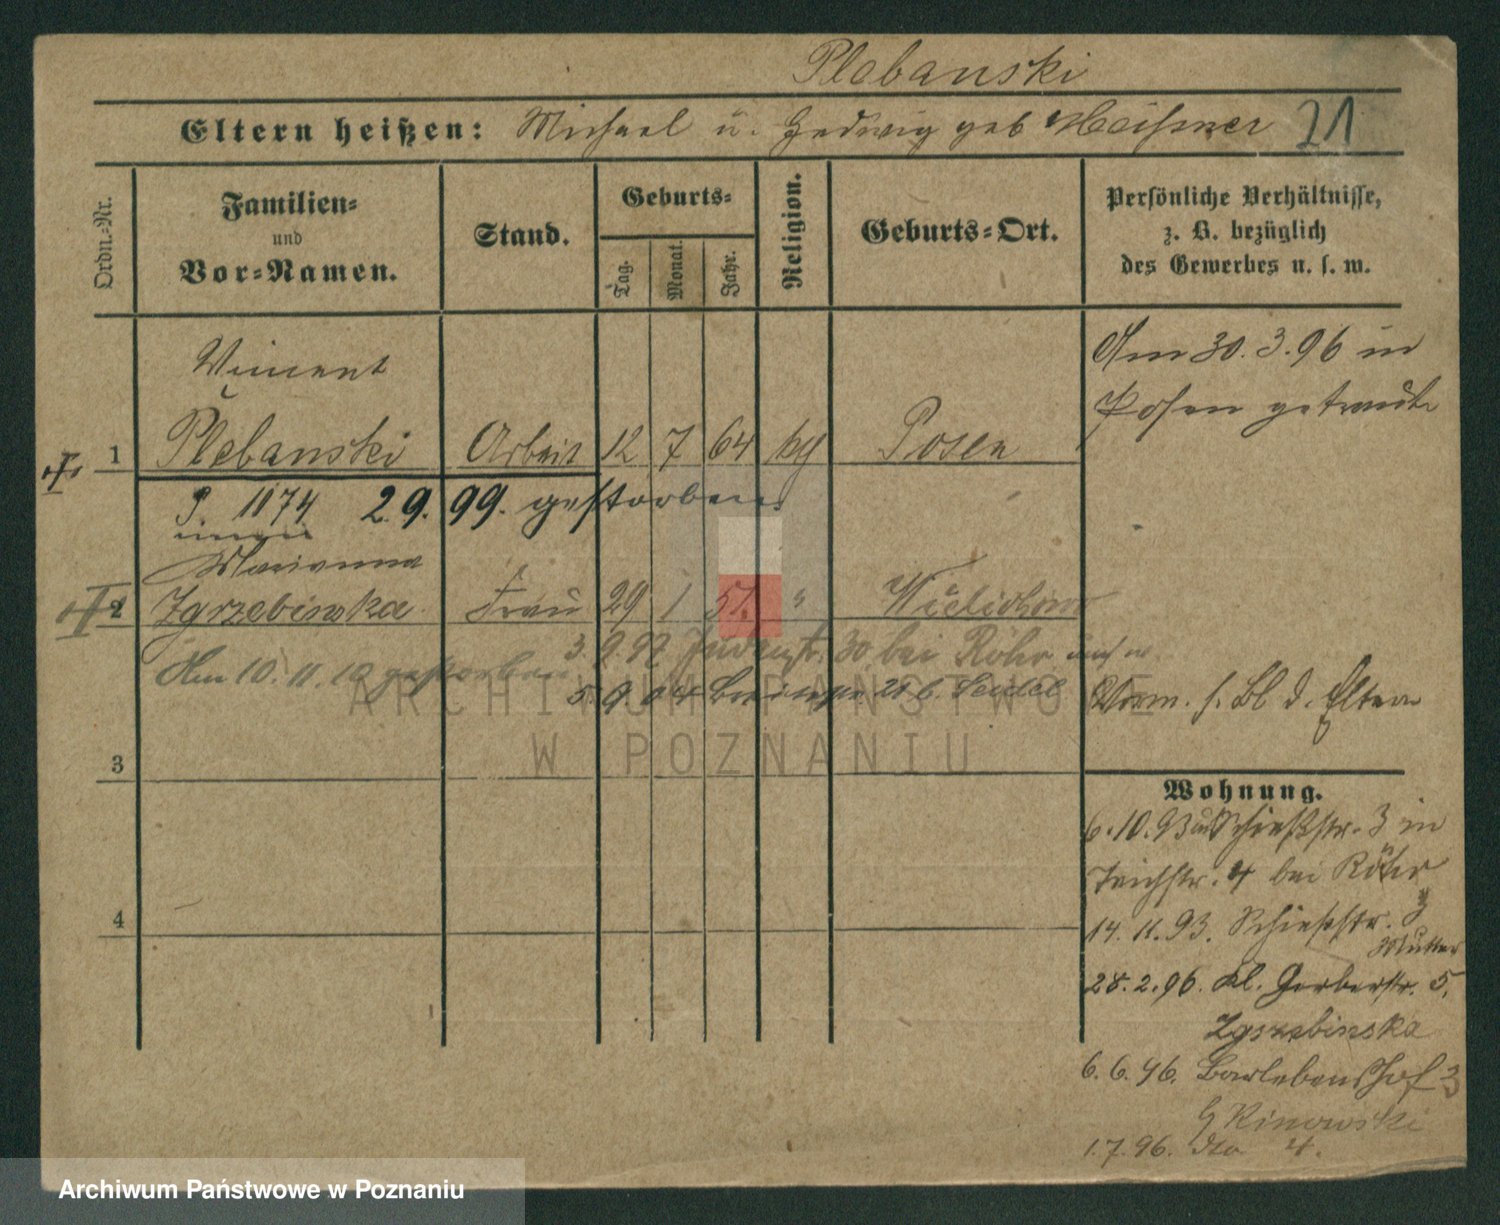 Plebanski
Eltern heißen: Michael u. Hedwig geb Meißner 21
Ordn.-Nr.
Familien-
und
Vor-Namen.
Stand.
Geburts-
Tag.
Monat.
Jahr.
Religion.
Geburts-Ort.
Persönliche Verhältnisse,
z. B. bezüglich
des Gewerbes u. s. w.
Am 30.3.96 in
Posen getraut
Vincent
1 Plebanski Arbeit 12 7 64 kg Posen
P. 1174 2.9.99. gestorben.
Marianna
2 Zgrzebinska Frau 29 1 51. " Wielichowo
3.9.97 30 bei Röhr
Am 10.11.10 gestorben
5.9.04 21 b. Seidel
Vorm. s. Bl d. Eltern
ARCHIWUM PAŃSTWOWE
W POZNANIU
3
Wohnung.
6.10.93 Schießstr. 3 in
Teichstr. 4 bei Röhr
4
14.11.93. Schießstr. 3
Mutter
28.2.96. Kl. Gerberstr. 5.
Zgrzebinska
6.6.96. Barlebenshof 3
1.7.96. do 4.
Archiwum Państwowe w Poznaniu